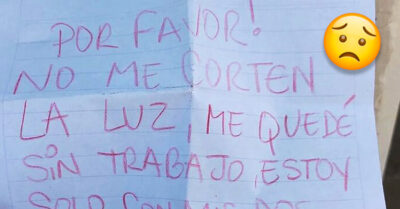 POR FAVOR!
NO ME CORTEN
LA LUZ, ME QUEDÉ
SIN TRABAJO, ESTOY
SOLO CON MIS DOS